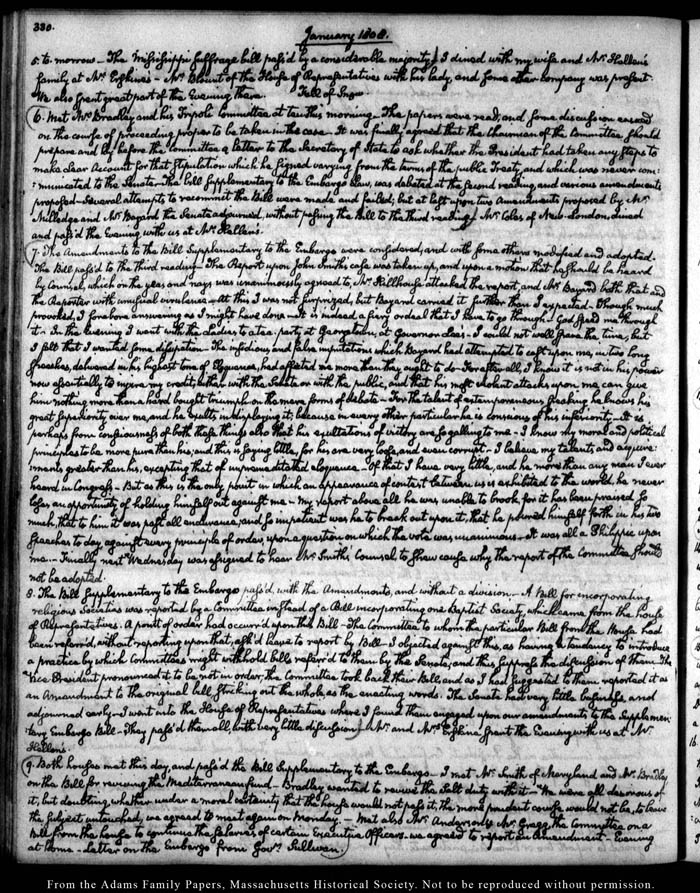 330.
January 1808.
5. to-morrow — The Mississippi suffrage bill pass'd by a considerable majority. I dined with my wife and Mr. Hellen's
family at Mr. Erskine's — Mr. Blount of the House of Representatives with his lady, and some other company was present.
We also spent great part of the Evening there. Fall of Snow.
6. Met Mr. Bradley and his Tripoli Committee, at ten this morning — The papers were read, and some discussion ensued
on the course of proceeding proper to be taken in the case — It was finally agreed that the Chairman of the Committee, should
prepare and lay before the Committee a letter to the Secretary of State to ask whether the President had taken any steps to
make dear Account for that stipulation which he signed varying from the terms of the public Treaty, and which was never com:
:municated to the Senate — The bill supplementary to the Embargo law, was debated at the second reading, and various amendments
proposed — Several attempts to recommit the Bill were made and failed; but at last upon two Amendments proposed by Mr.
Milledge and Mr. Bayard the Senate adjourned, without passing the Bill to the third reading. Mr. Coles of New-London, dined
and pass'd the Evening with us at Mr. Hellen's.
7. The Amendments to the Bill Supplementary to the Embargo were considered; and with some others modified and adopted.
The Bill pass'd to the third reading — The Report upon John Smith's case was taken up, and upon a motion that he should be heard
by Counsel, which on the yeas and nays was unanimously agreed to, Mr. Hillhouse attacked the report, and Mr. Bayard both that and
the Reporter with unusual virulence — At this I was not surprized, but Bayard carried it further than I expected — Though much
provoked, I forebore answering as I might have done — It is indeed a fiery ordeal that I have to go through — God speed me through
it. — In the Evening I went with the ladies to a tea-party at Georgetown, at Governor Lee's — I could not well spare the time, but
I felt that I wanted some dissipation — The insidious and false imputations which Bayard had attempted to cast upon me, in two long
Speeches, delivered in his highest tone of Eloquence, had affected me more than they ought to do — For after all, I know it is not in his power
now essentially to injure my credit, either with the Senate or with the public, and that his most violent attacks upon me can give
him nothing more than a hard bought triumph on the mere forms of debate — For the talent of extemporaneous speaking he knows his
great superiority over me, and he exults in displaying it; because in every other particular he is conscious of his inferiority — It is
perhaps from consciousness of both these things also that his exultations of victory are so galling to me — I know my moral and political
principles to be more pure than his; and this is saying little, for his are very loose, and even corrupt — I believe my talents and acquire:
:ments greater than his, excepting that of unpremeditated eloquence — Of that I have very little, and he more than any man I ever
heard in Congress — But as this is the only point in which an appearance of contest between us is exhibited to the world, he never
loses an opportunity of holding himself out against me — My report above all he was unable to brook, for it has been praised so
much, that to him it was past all endurance; and so impatient was he to break out upon it, that he plumed himself forth in his two
speeches to day against every principle of order, upon a question on which the vote was unanimous — It was all a Philippic upon
me — Finally next Wednesday was assigned to hear Mr. Smith's Counsel to shew cause why the report of the Committee should
not be adopted.
8. The Bill Supplementary to the Embargo pass'd, with the Amendments, and without a division — A Bill for incorporating
religious Societies was reported by a Committee instead of a Bill incorporating one Baptist Society, which came from the house
of Representatives. A point of order had occurr'd upon this Bill — The Committee to whom the particular Bill from the House had
been referr'd, without reporting upon that, ask'd leave to report by Bill — I objected against this, as having a tendency to introduce
a practice by which Committees might withhold bills referr'd to them by the Senate, and thus suppress the discussion of them. The
Vice-President pronounced it to be not in order; the Committee took back their Bill, and as I had suggested to them reported it as
an Amendment to the original bill, striking out the whole, as the enacting words. The Senate had very little business, and
adjourned early — I went into the House of Representatives where I found them engaged upon our amendments to the Supplemen:
:tary Embargo Bill — They pass'd them all, with very little discussion — Mr. and Mrs. Erskine spent the Evening with us at Mr.
Hellen's.
9. Both houses met this day, and pass'd the Bill Supplementary to the Embargo — I met Mr. Smith of Maryland and Mr. Bradley
on the Bill for reviving the Mediterranean fund — Bradley wanted to revive the Salt duty with it — We were all desirous of
it, but doubting whether under a moral certainty that the house would not pass it, the more prudent course would not be, to leave
the subject untouched, we agreed to meet again on Monday. — Met also Mr. Anderson & Mr. Gregg, the Committee on a
Bill from the house to continue the salaries of certain Executive Officers — we agreed to report an Amendment — Evening
at home — Letter on the Embargo from Govr. Sullivan.
From the Adams Family Papers, Massachusetts Historical Society. Not to be reproduced without permission.